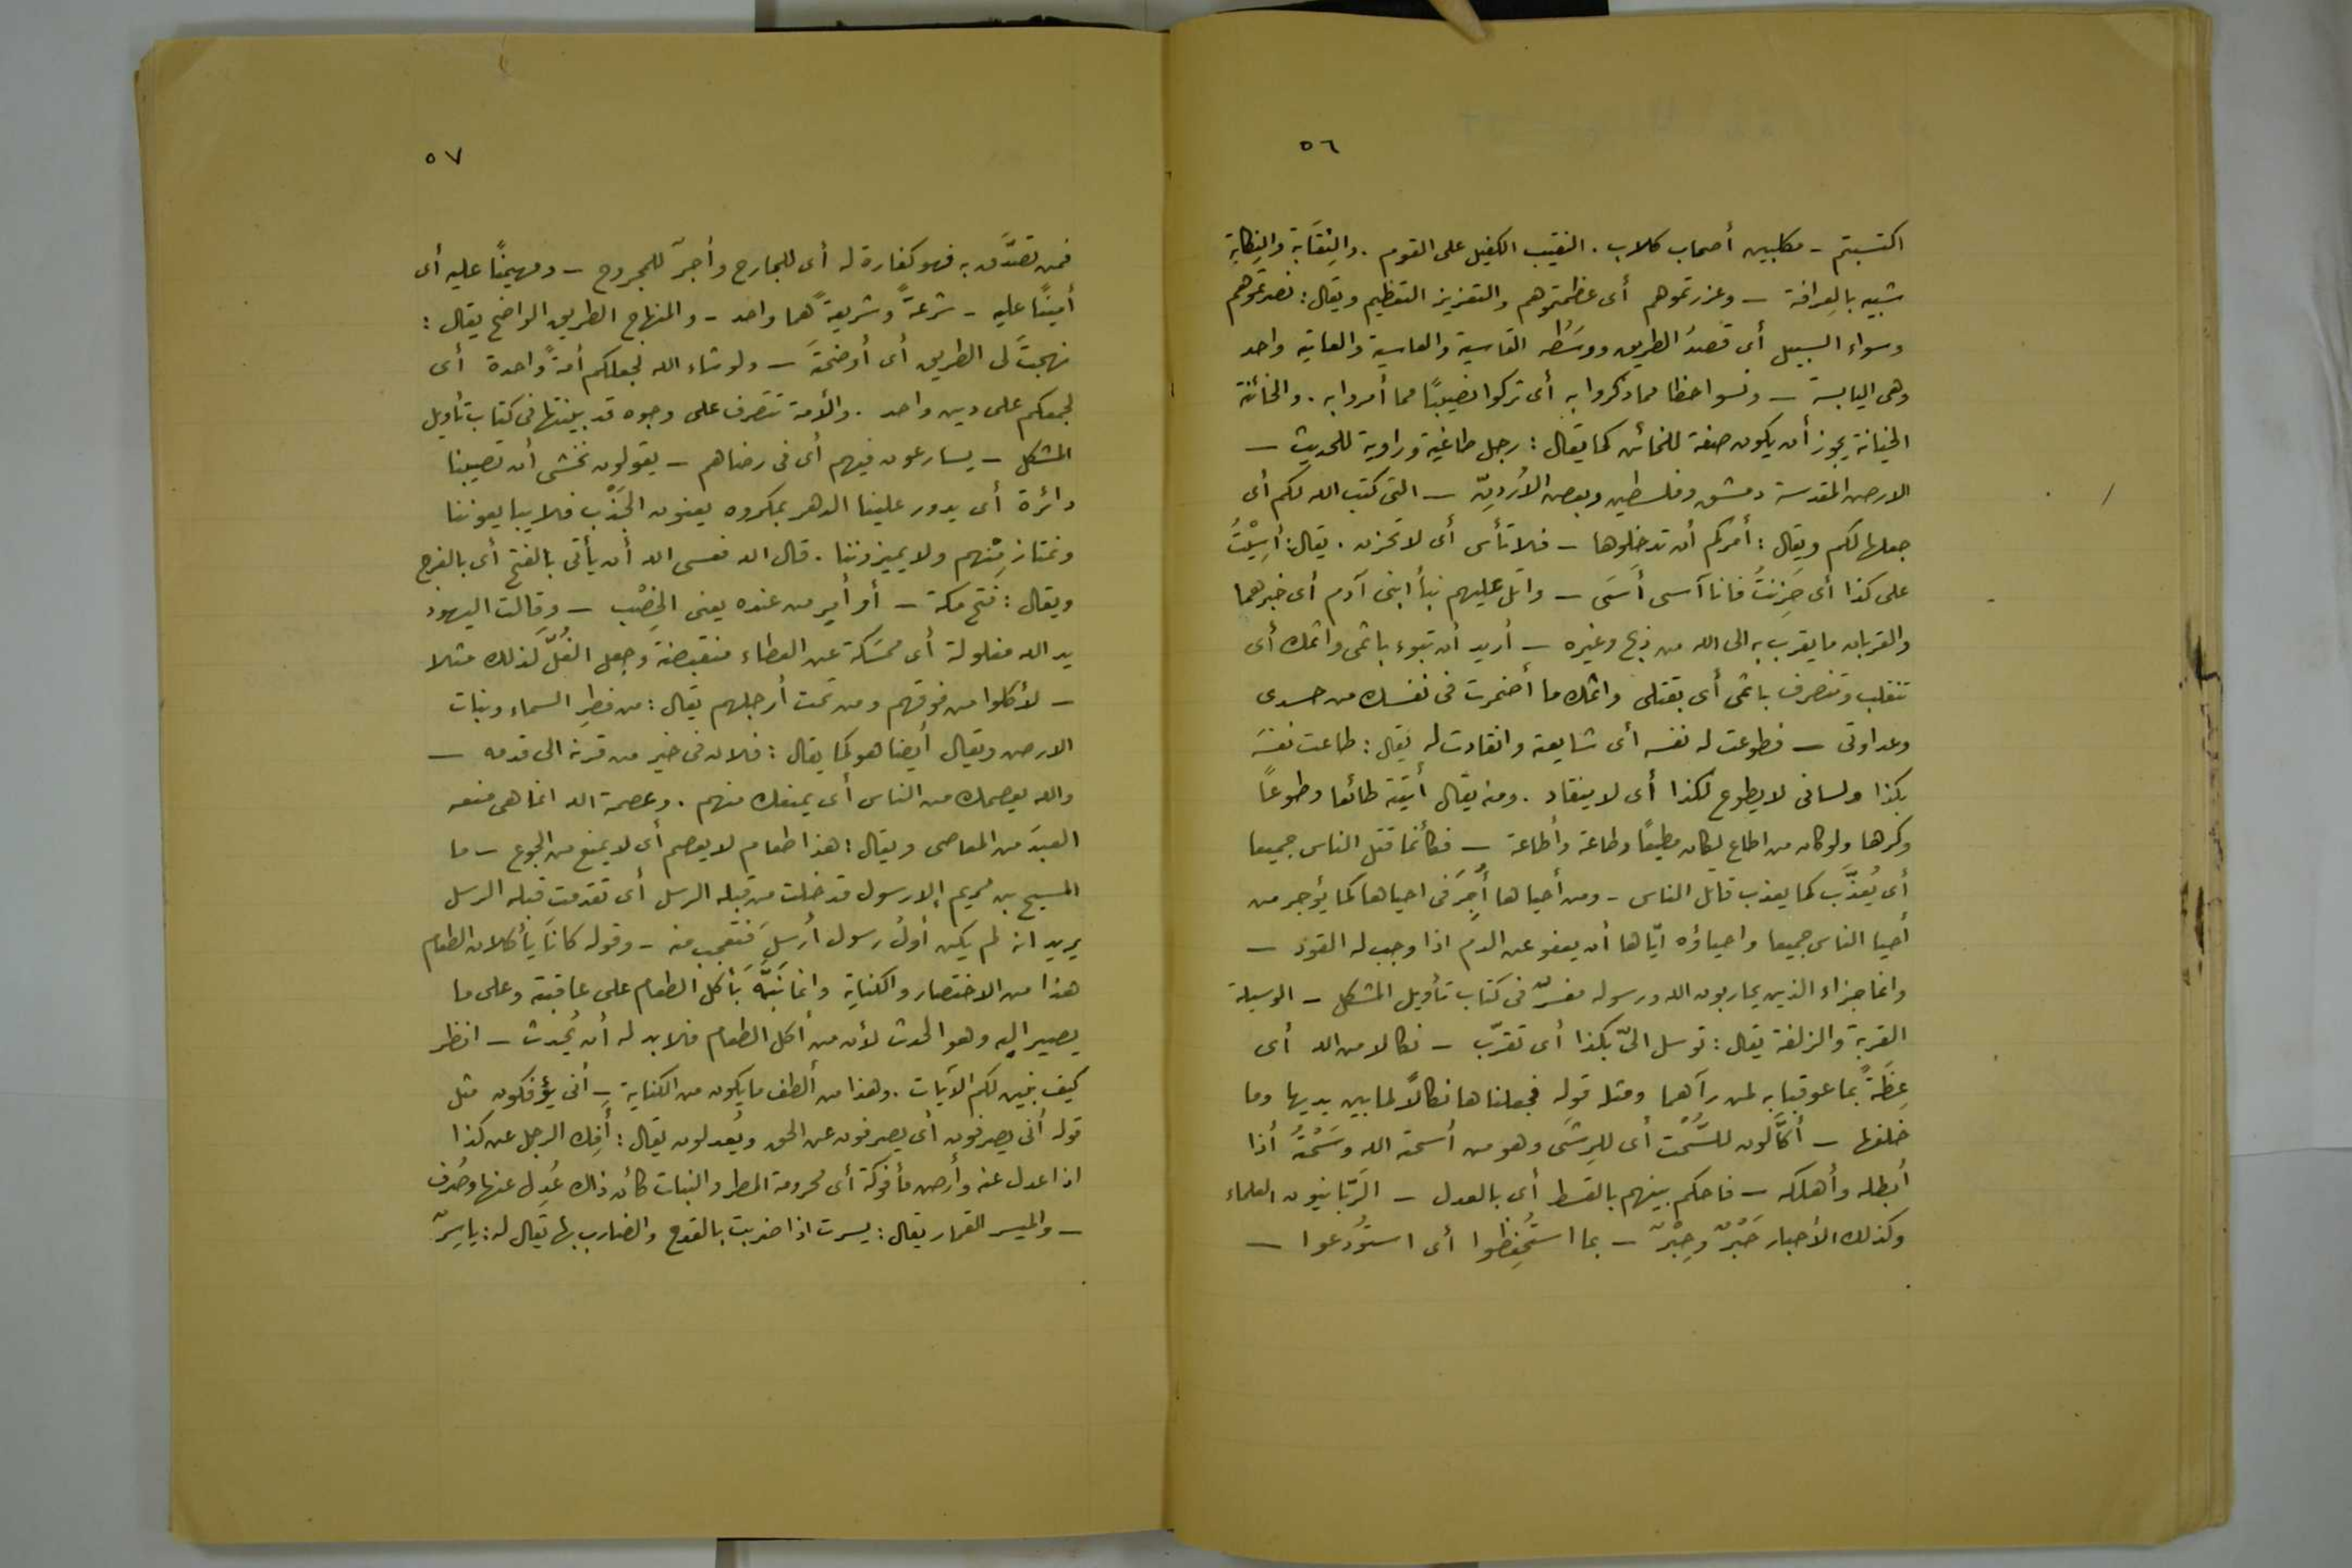 ٥٦
اكتسبتم – مكلبين أصحاب كلاب . النقيب الكفيل على القوم . والنِقَابة والنِكابة
شبيه بالعِرافة – وعزرتموهم أى عظمتوهم والتعزيز التعظيم ويقال : نصرتموهم
وسواء السبيل أى قصدُ الطريق ووسَطُه القاسية والعاسية والعاتية واحد
وهى اليابسة – ونسوا حظا مما ذكروا به أى تركوا نصيبًا مما أمروا به . والخائنة
الخيانة يجوز أن يكون صفة للخائن كما يقال : رجل طاغية وراوية للحديث –
الارض المقدسة دمشق وفلسطين وبعض الأُردنّ – التى كتب الله لكم أى
جعلها لكم ويقال : أمركم أن تدخلوها – فلا تأس أى لا تحزن . يقال : أسِيْتُ
على كذا أى حَزِنتُ فانا آسى أسَى – واتل عليهم نبأ ابنى آدم أى خبرهما
والقربان ما يقرب به الى الله من ذبح وغيره – أريد أن تبوء باثمى واثمك أى
تنقلب وتنصرف باثمى أى بقتلى واثمك ما أضمرت فى نفسك من حسدى
وعداوتى – فطوعت له نفسه أى شايعته وانقادت له يقال : طاعت نفسَه
بكذا ولسانى لا يطوع لكذا أى لا ينقاد . ومنه يقال أتيته طائعا وطوعاً
وكرها ولو كان من اطاع لكان مطيعًا وطاعة وأطاعة – فكأنما قتل الناس جميعا
أى يُعذَّب كما يعذب قاتل الناس – ومن أحياها أُجِرَ فى احياها كما يؤجر من
أحيا الناس جميعا واحياؤه ايّاها أن يعفو عن الدم اذا وجب له القود –
وانما جزاء الذين يحاربون الله ورسوله مفسرٌ فى كتاب تأويل المشكل – الوسيلة
القربة والزلفة يقال : توسل الىّ بكذا أى تقرّب – نكالا من الله أى
عِظَةً بما عوقبا به لمن رآهما ومثله قوله فجعلناها نكالاً لما بين يديها وما
خلفها – أكَّالون للسُّحت أى للرِشَى وهو من أسحته الله وسَحَتهُ أذا
أبطله وأهلكه – فاحكم بينهم بالقسط أى بالعدل – الرَّبانيون العلماء
وكذلك الأحبار حَبْرٌ وحِبْرٌ – بما استُحفِظوا أى استُودعوا –
٥٧
فمن تصدَّق به فهو كفارة له أى للجارح وأجرٌ للمجروح – ومهيمنًا عليه أى
أمينًا عليه – شرعةً وشريعةً هما واحد – والمنهاج الطريق الواضح يقال :
نهجتَ لى الطريق أى أوضحتَه – ولو شاء الله لجعلكم أمةً واحدة أى
لجمعكم على دين واحد . والأمة تتصرف على وجوه قد بينتها فى كتاب تأويل
المشكل – يسارعون فيهم أى فى رضاهم – يقولون نخشى أن تصيبنا
دائرة أى يدور علينا الدهر بمكروه يعنون الجَدْب فلا يبايعوننا
ونمتاز مِنهم ولا يميزوننا . قال الله فعسى الله أن يأتى بالفتح أى بالفرج
ويقال : فتح مكة – أو أمرٍ من عنده يعنى الخِصْب – وقالت اليهود
يد الله مغلولة أى ممسَكة عن العطاء منقبضة وجعل الغُلَّ كذلك مثلا
– لأكلوا من فوقهم ومن تحت أرجلهم يقال : من قطرِ السماء ونبات
الارض ويقال أيضا هو كما يقال : فلان فى خير من قرنه الى قدمه –
والله يعصمك من الناس أى يمنعك منهم . وعصمة الله انما هى منعه
العبدَ من المعاصى ويقال : هذا طعام لا يعصم أى لا يمنع من الجوع – ما
المسيح بن مريم إلا رسول قد خلت من قبله الرسل أى تقدمت قبله الرسل
يريد انه لم يكن أولُ رسول أُرسِلَ فتعجب منه – وقوله كانا يأكلان الطعام
هذا من الاختصار والكناية وانما نَبَّهَ بأكل الطعام على عاقبته وعلى ما
يصير اليه وهو الحدث لأن من أكل الطعام فلا بد له أن يُحدِث – انظر
كيف نبين لكم الآيات . وهذا من ألطف ما يكون من الكناية – أنى يؤفكون مثل
قوله أنى يصرفون أى يصرفون عن الحق ويُعدلون يقال : أُفِك الرجل عن كذا
اذا عدل عنه وأرض مأفوكة أى محرومة المطر والنبات كأن ذلك عُدِل عنها وصُرف
– والميسر القمار يقال : يسرت اذا ضربت بالقدح والضارب بها يقال له : ياسِرٌ